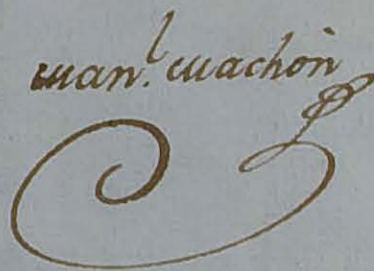 Man.l Machòn